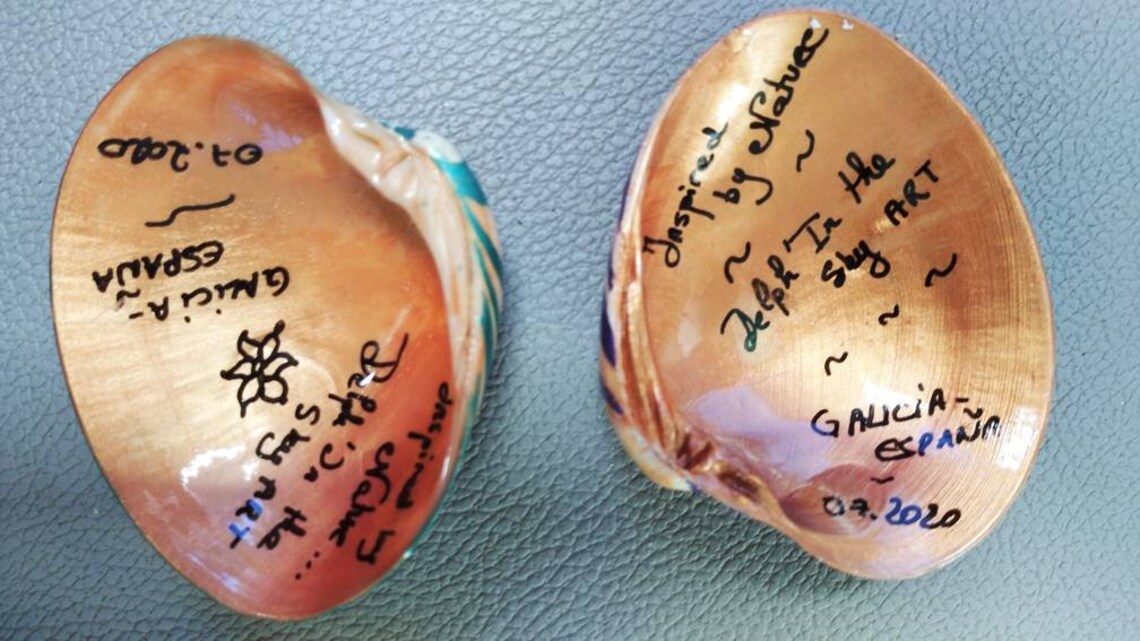 Inspired by
Nature...
Delph'In the
Sky ART
GALICIA-
ESPAÑA
07.2020
Inspired
by Nature
~
~
Delph'In the
Sky ART
~
~
~
GALICIA-
ESPAÑA
~
07.2020